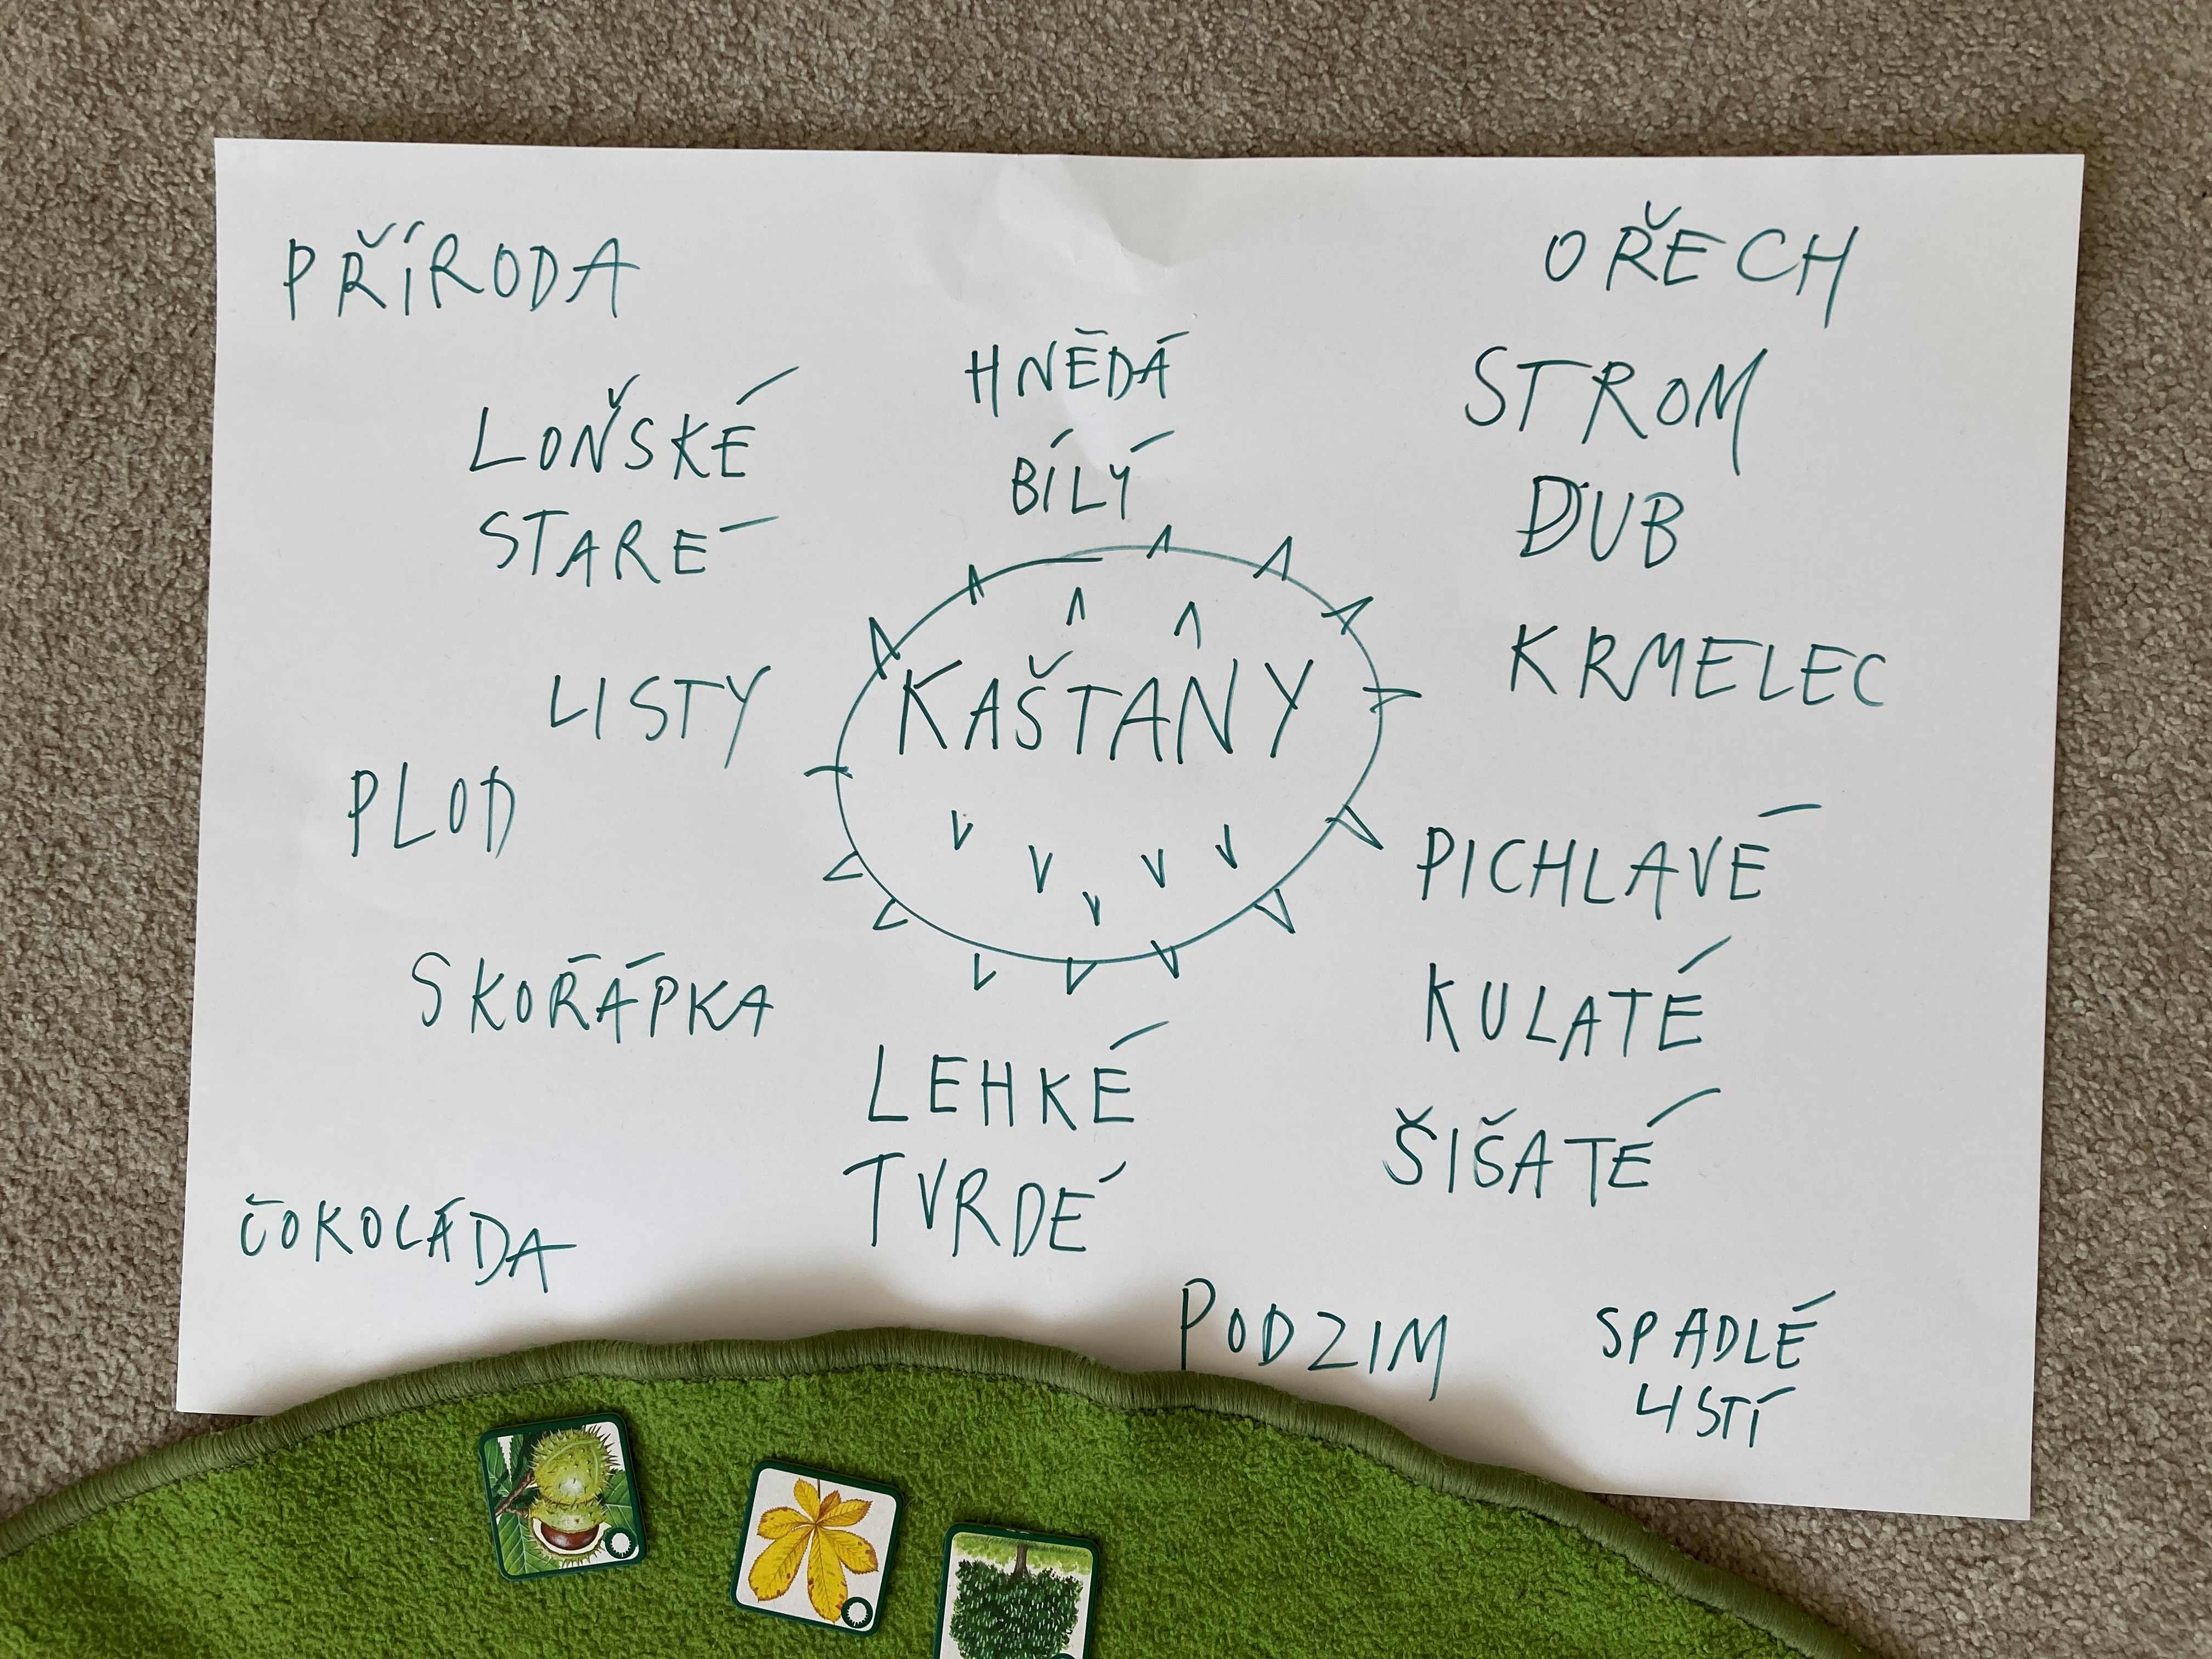 PŘÍRODA
LOŇSKÉ
STARÉ
LISTY
PLOD
SKOŘÁPKA
ČOKOLÁDA
HNĚDÁ
BÍLÝ
KAŠTANY
LEHKÉ
TVRDÉ
OŘECH
STROM
DUB
KRMELEC
PICHLAVÉ
KULATÉ
ŠIŠATÉ
PODZIM
SPADLÉ
LISTÍ